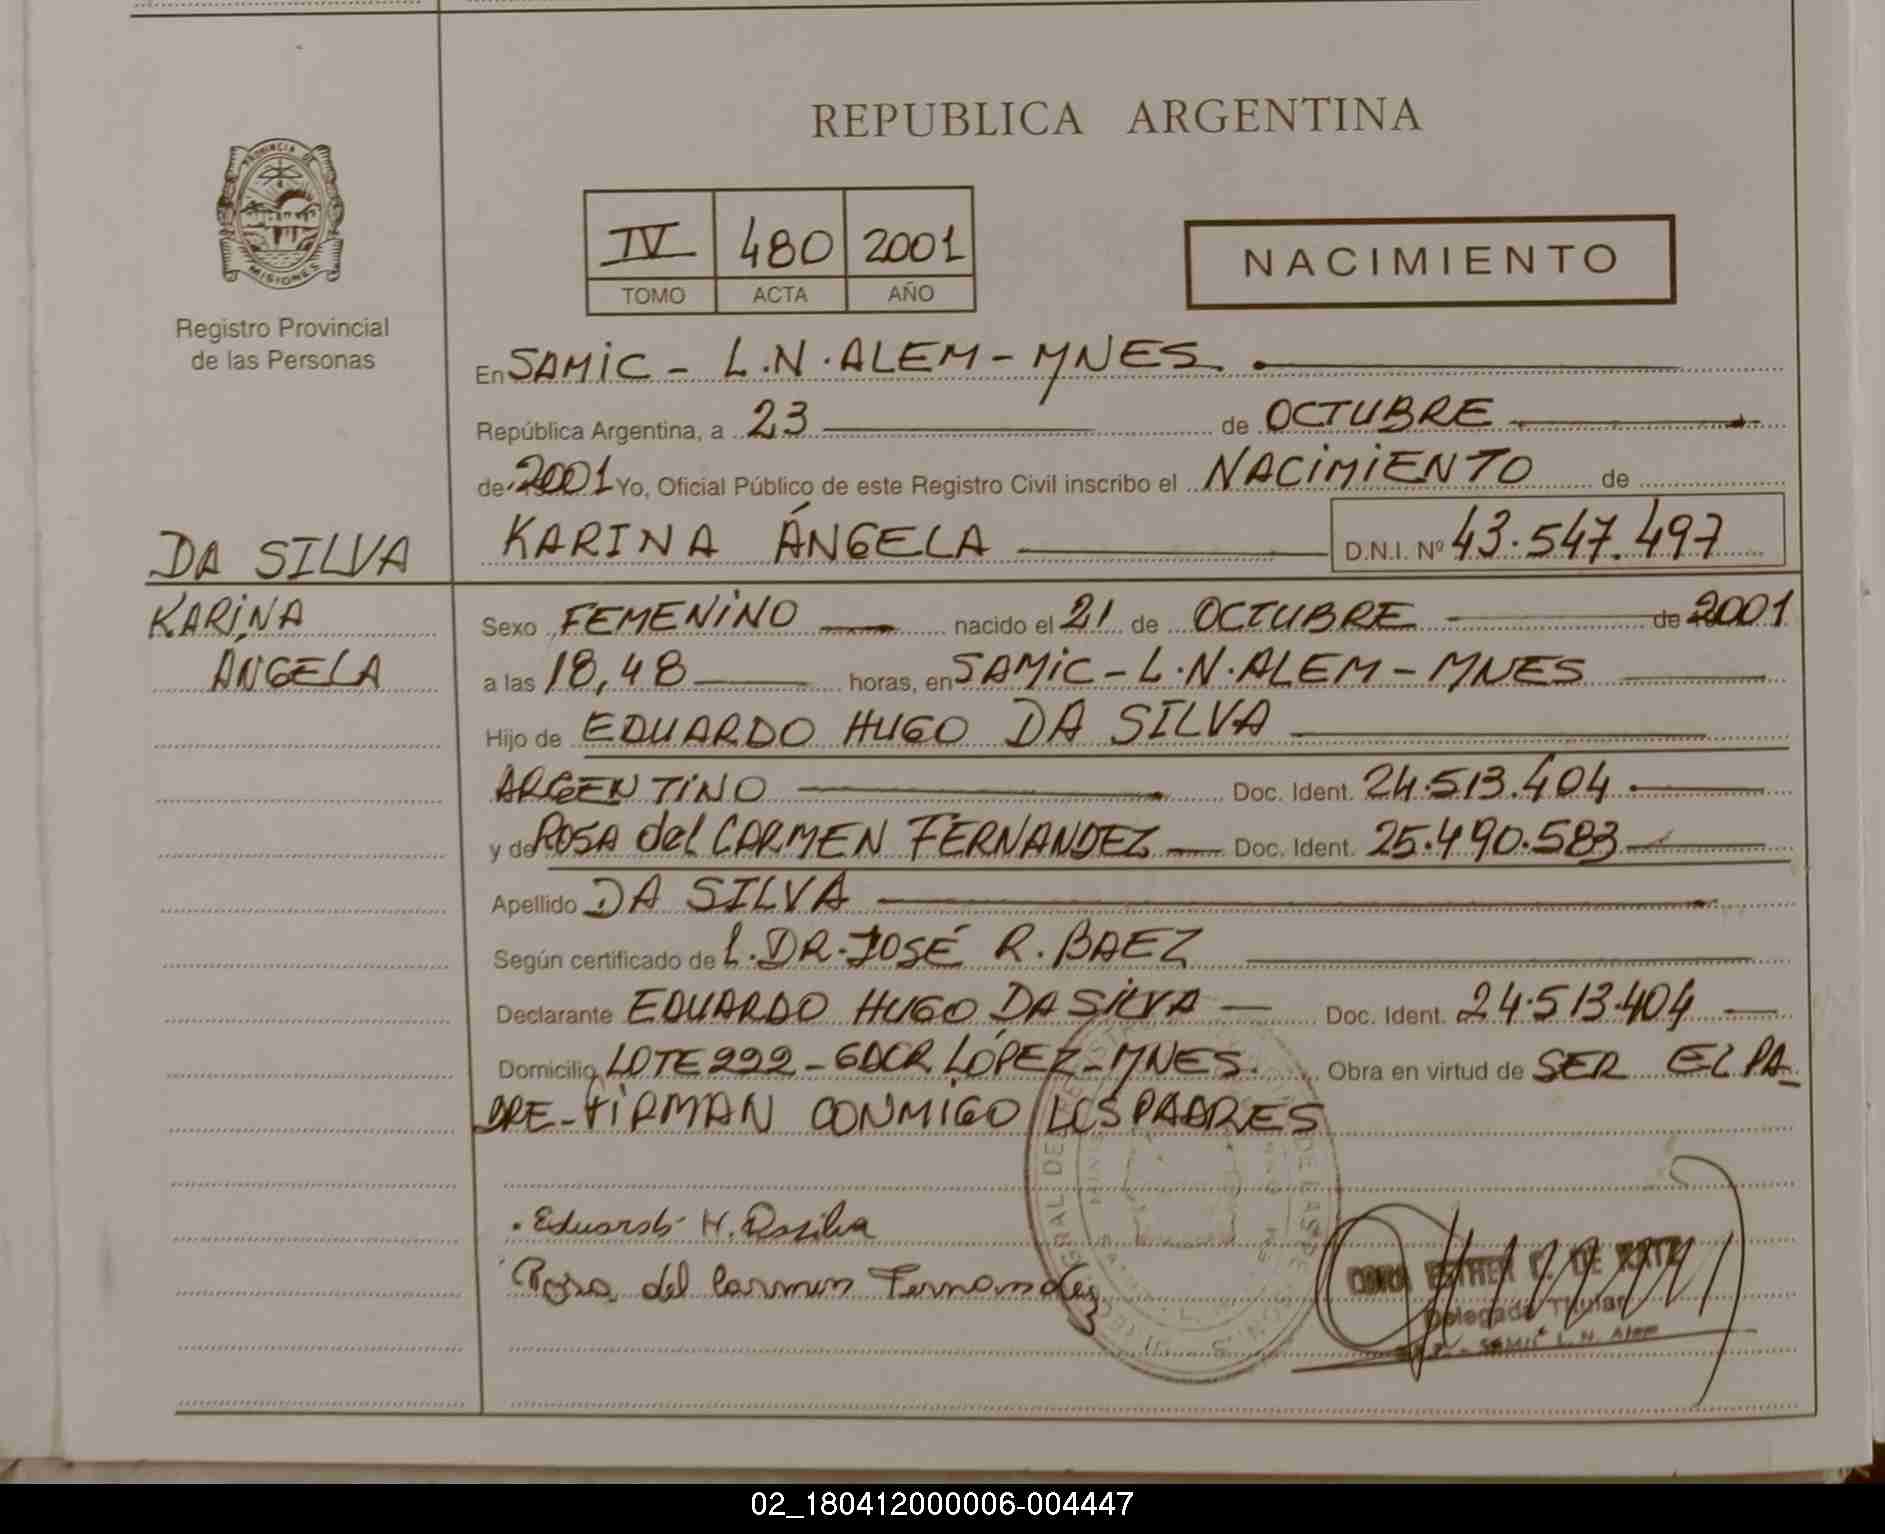 REPUBLICA ARGENTINA
PROVINCIA DE
MISIONES
Registro Provincial
de las Personas
IV 480 2001
TOMO ACTA AÑO
NACIMIENTO
En SAMIC - L.N.ALEM - MNES
República Argentina, a 23 de OCTUBRE
de 2001 Yo, Oficial Público de este Registro Civil inscribo el NACIMIENTO de
KARINA ÁNGELA D.N.I. Nº 43.547.497
DA SILVA
KARINA
ÁNGELA
Sexo FEMENINO nacido el 21 de OCTUBRE de 2001
a las 18,48 horas, en SAMIC - L.N.ALEM - MNES
Hijo de EDUARDO HUGO DA SILVA
ARGENTINO Doc. Ident. 24.513.404
y de ROSA del CARMEN FERNANDEZ Doc. Ident. 25.490.583
Apellido DA SILVA
Según certificado de L.DR.JOSÉ R. BAEZ
Declarante EDUARDO HUGO DA SILVA Doc. Ident. 24.513.404
Domicilio LOTE 222 - GDOR LÓPEZ - MNES. Obra en virtud de SER EL PA-
DRE - FIRMAN CONMIGO LOS PADRES
Eduardo H. Dasilva
Rosa del Carmen Fernandez
ESTHER DE
Delegada Titular
SAMIC L. N. Alem
02_180412000006-004447